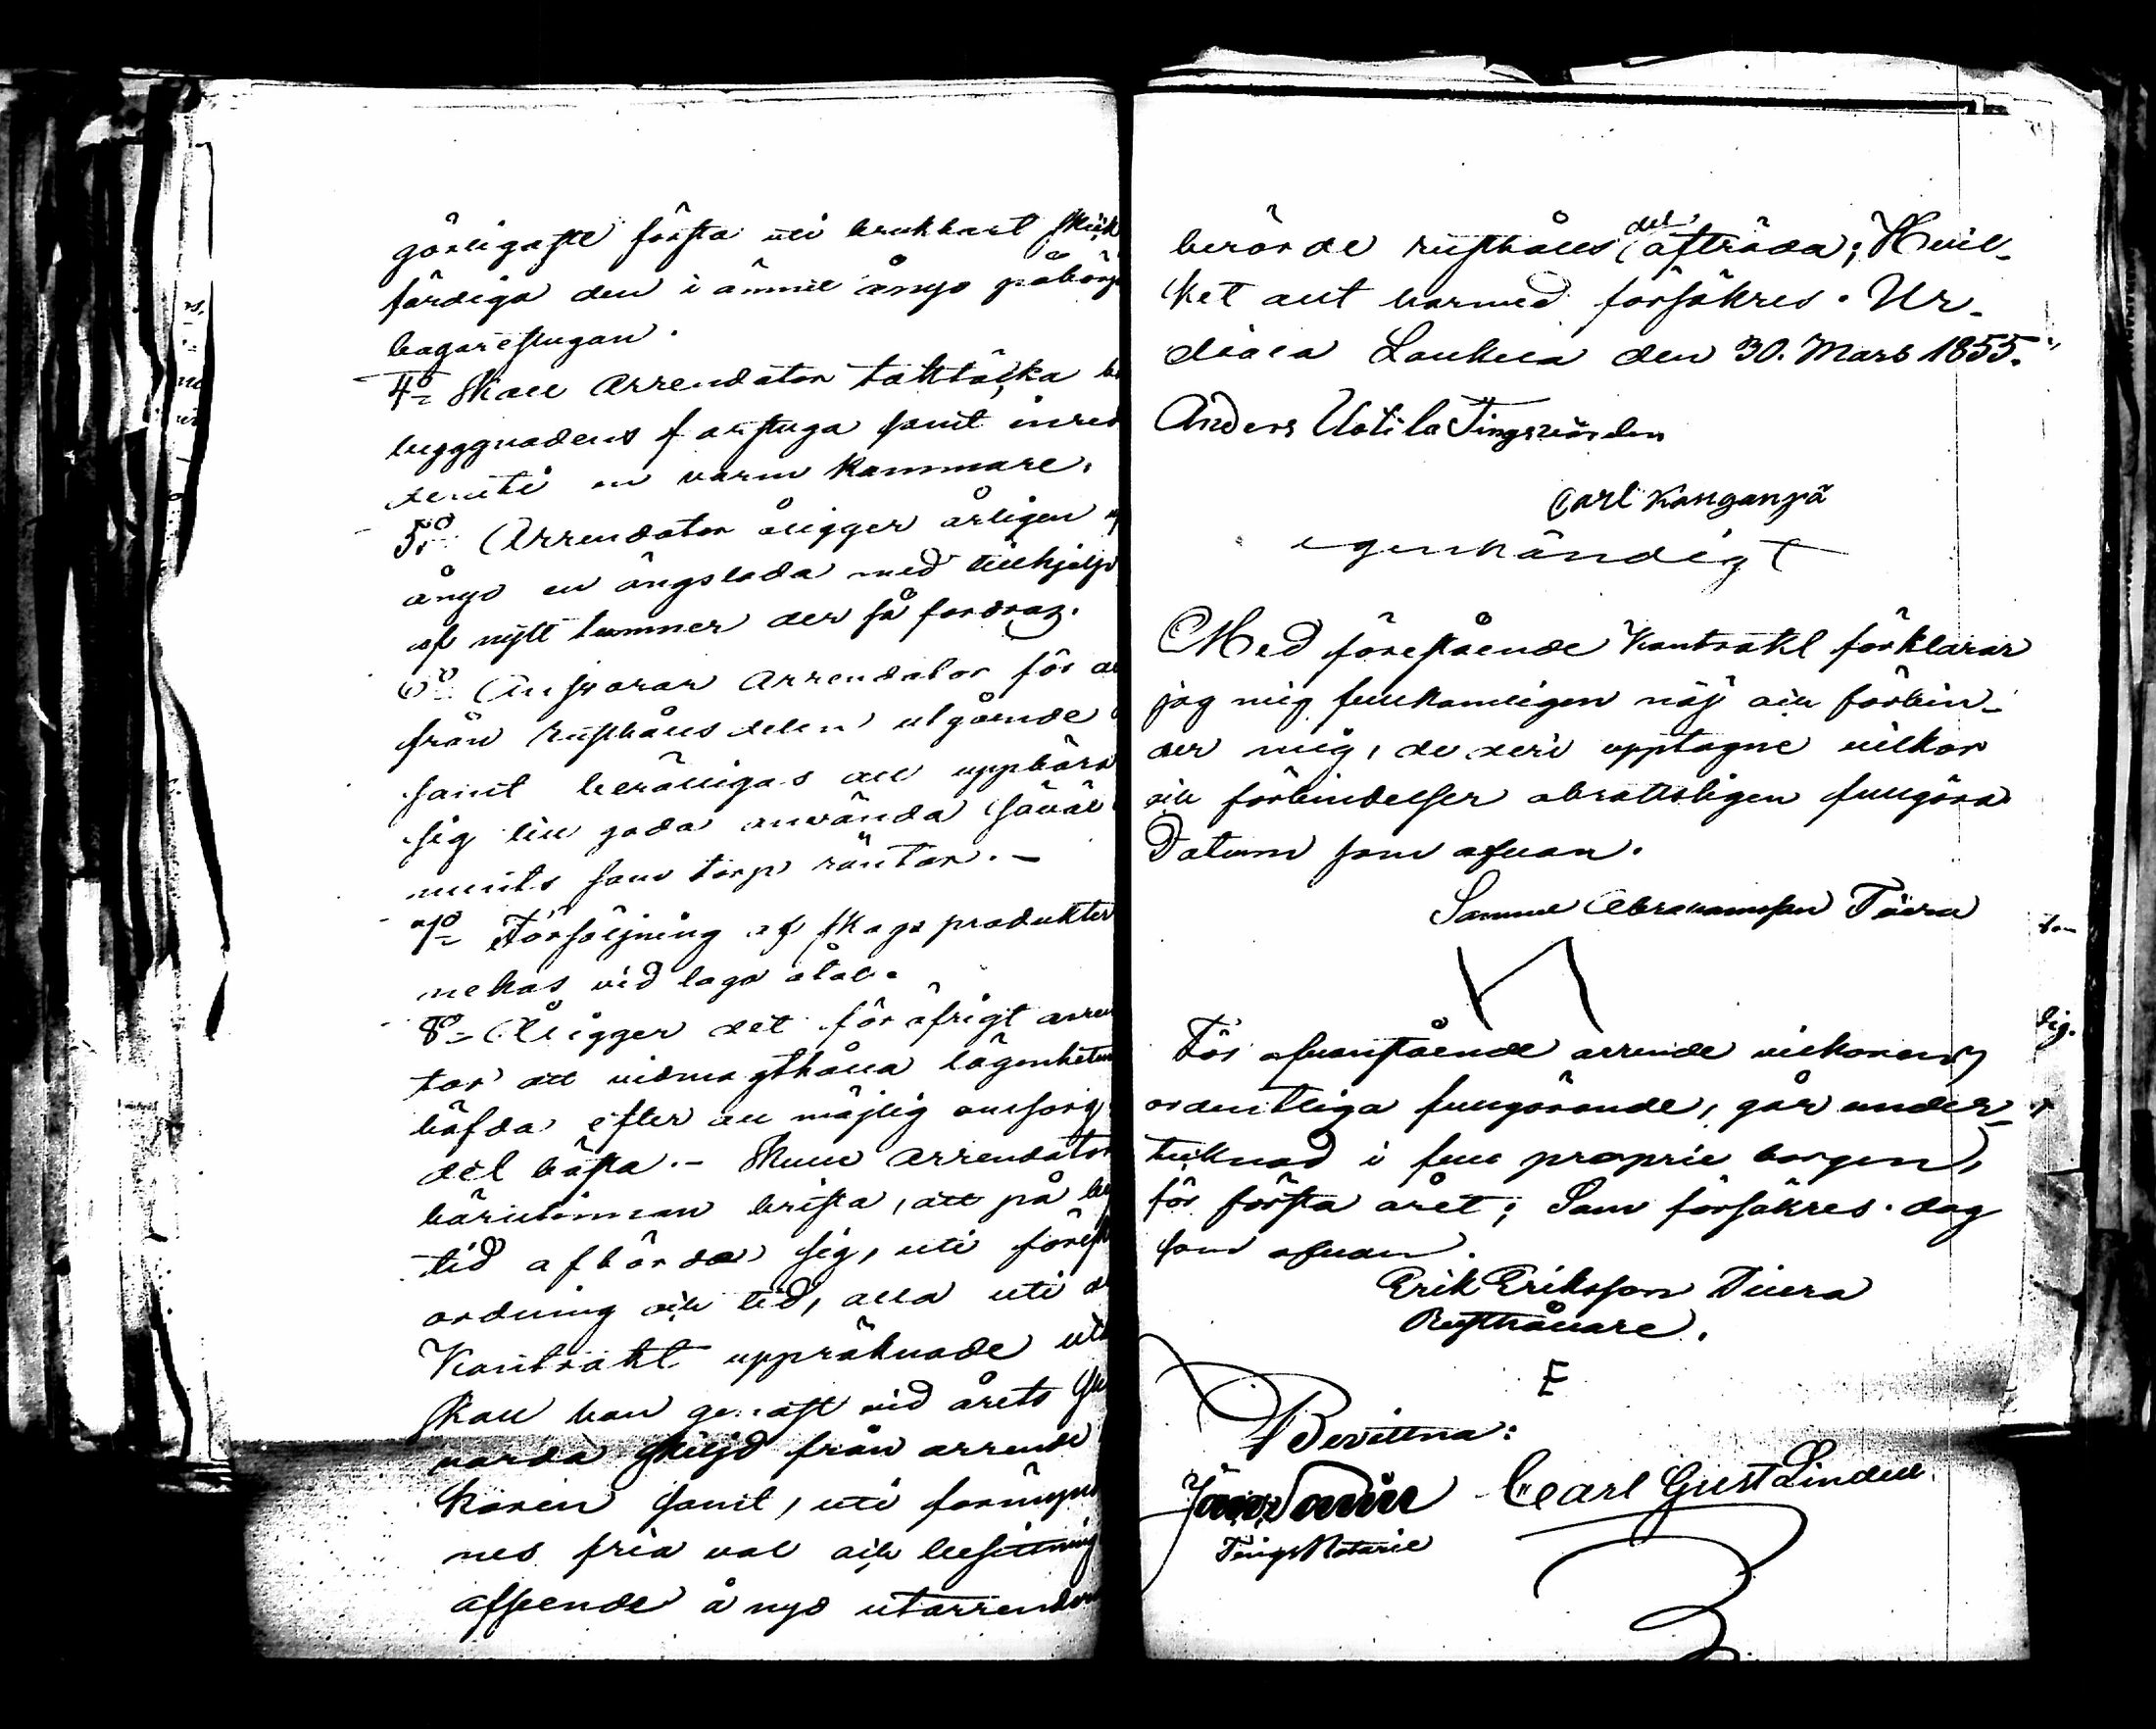 görligaste första uti brukbart skick
färdiga den i ämne ånyo påbörj
bagarestugan.
4o Skall Arrendator taktäcka
byggnadens farstuga samt inred
deruti en varm kammare.
5o Arrendator åligger årligen
ånyo en ängslada med tillhjelp
af nytt timmer der så fordras.
6o Ansvarar Arrendator för
från rusthålls delen utgående
samt berättigas att uppbära
sig till godo använda såväl
som torp räntor.—
7o Försäljning af skogs produkter
nekas vid laga åtal.
8o Åligger det för öfrigt arren
tor att vidmagthålla lägenheten
häfda efter all möjlig omsorg
det bästa.— Skulle Arrendator
härutinnan brista, att på
tid afbörda sig, uti
ordning och tid, alla uti
Kontrakt uppräknade
skall han genast vid årets
varda skiljd från arrende
koren samt, uti
nes fria val och besittning
afseende å nyo utarrendera
berörde rusthålls del afträda; Hvil-
ket allt härmed försäkres. Ur-
diala Laukeela den 30. Mars 1855.
Anders Uotila Tingsvärden
Carl Kanganpä
egenhändigt
Med förestående Kontrakt förklarar
jag mig fullkomligen nöjd och förbin-
der mig, de deri upptagne vilkor
och förbindelser obrottsligen fullgöra
Datum som ofvan.
Samuel Abrahamsson Tivra
För ofvanstående arrende vilkorens
ordentliga fullgörande, går under-
tecknad i full proprie borgen,
för första året; Som försäkres. dag
som ofvan.
Erik Eriksson Tivra
Rusthållare.
E
Bevittna:
Carl Gust Lindell
Tings Notarie